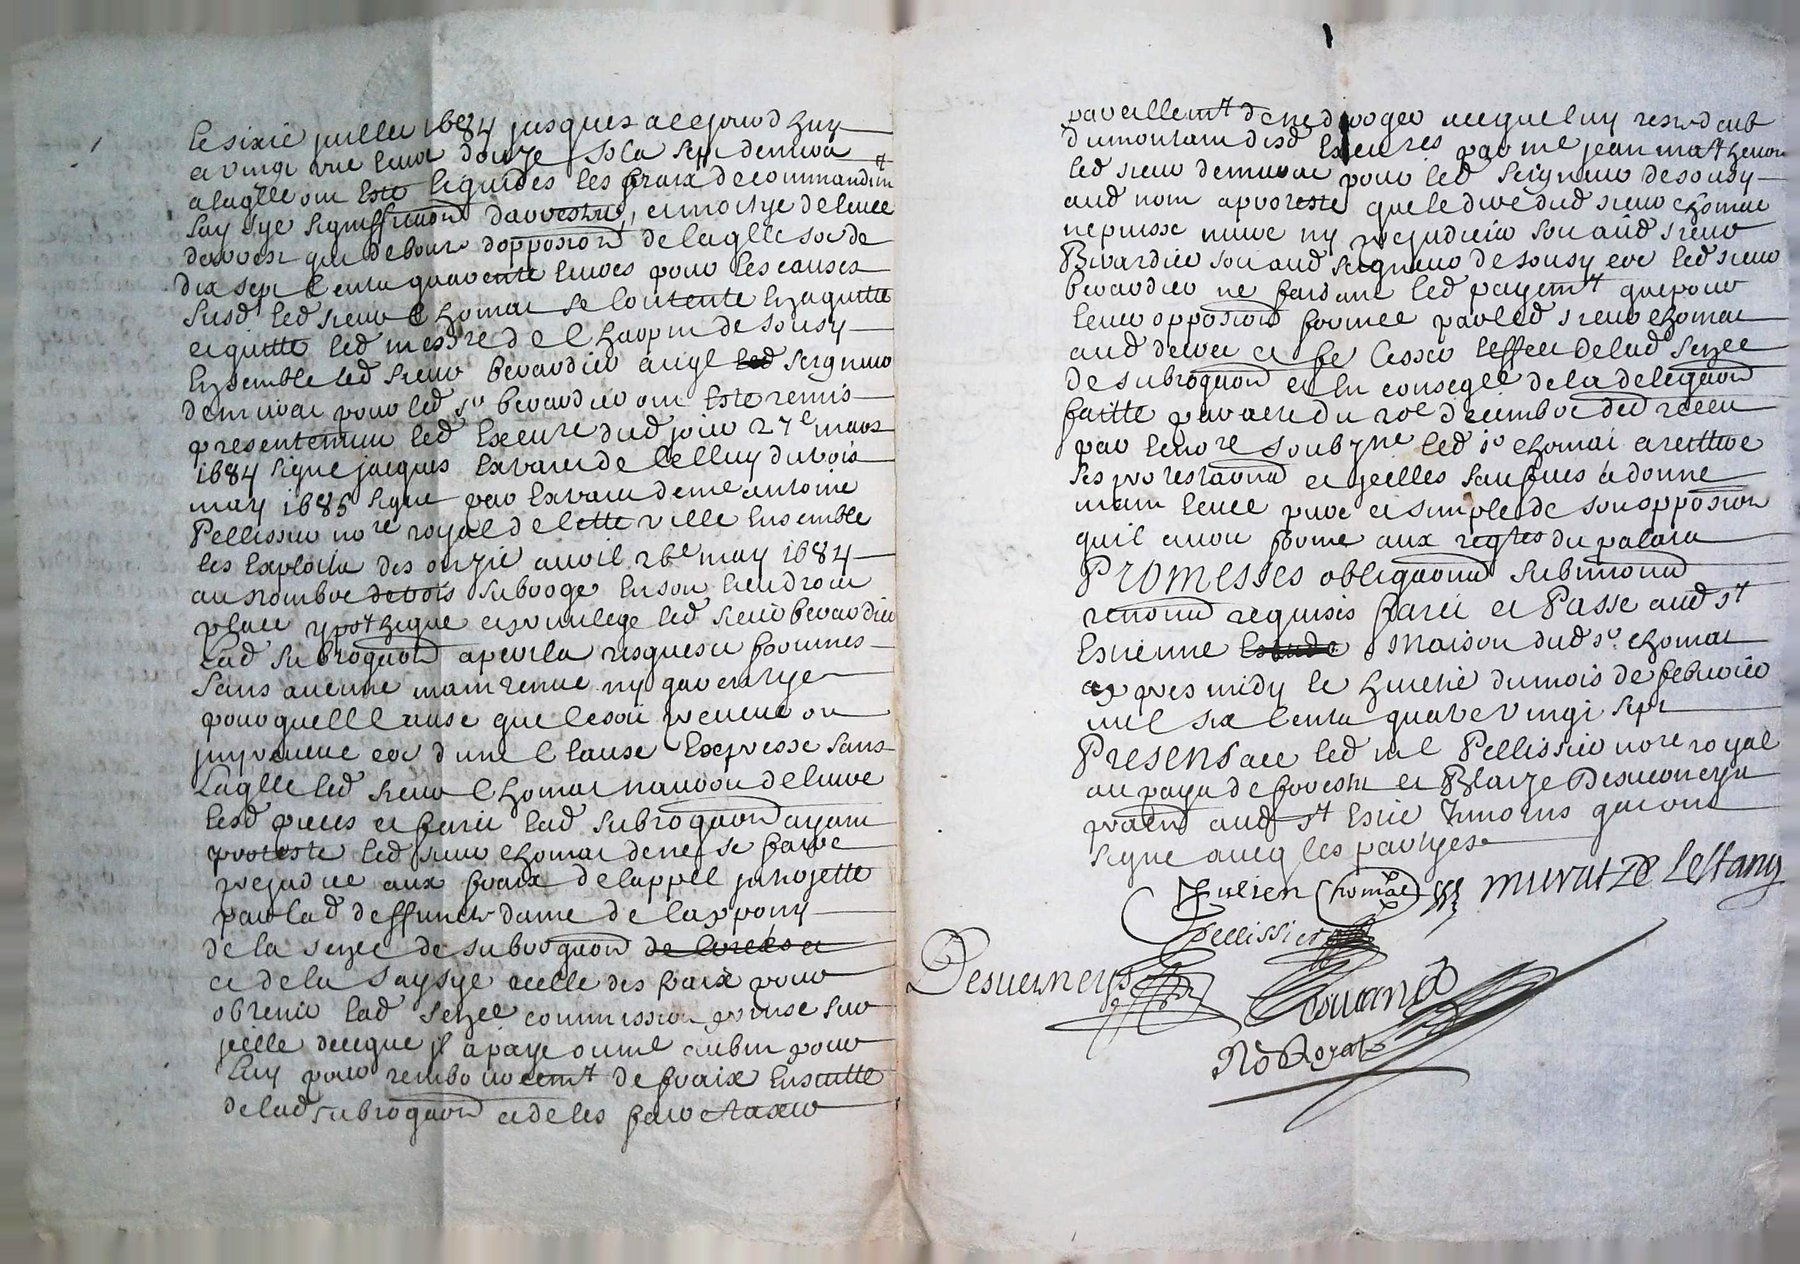 le sixie juillet 1684 jusques a cejourdhuy
a vingt une livre douze sols sept deniers
a laqlle ont este liquides les fraix de commandemt
saysye signiffication darrestz, et moitye de levee
darrest qui debout dopposion de laqlle soe de
dix sept cents quarente livres pour les causes
susd led sieur Chomat se contente en aquitte
et quitte led messre de Chaponay de
ensemble led sieur beraudier au led seigneur
de murat pour led sr beraudier ont este remis
presentement led dud jour 27e mars
1684 signe jacques extrait de celluy du trois
may 1685 signe par extrait de me antoine
Pellissier nore royal de cette ville ensemble
les exploits des onzie avril 26e may 1684
au nombre de trois subroge en son lieu droit
place ypotheque et privilege led sieur beraudier
Lad subrogaon a perils risques et fortunes
sans aucune maintenue ny garentye
pour quelle cause que ce soit preveue ou
impreveue et dune clause expresse sans
Laqlle led sieur Chomat nauroit delivre
lesd pieces et faict lad subrogaon ayant
proteste led sieur chomat de ne se faire
prejudice aux fraix de lappel
par lad deffuncte dame de
de la senze de subrogaon
et de la saysye reelle des fraix pour
obtenir lad senze commission prinse sur
icelle de ce que il a paye ou me aubin pour
luy pour remboursemt de fraix ensuitte
de lad subrogaon et de les faire taxer
pareillemt de ne deroger a ce que luy reste deub
du montant desd par me jean
led sieur de murat pour led seigneur
aud nom a proteste que le dire dud sieur chomat
ne puisse nuire ny prejudicier soit aud sieur
Berardier soit aud seigneur de led sieur
beraudier ne faisant led payemt que pour
leur opposion formee par led sieur chomat
aud decret et fe cesser leffect de lad senze
de subrogaon et en conseqce de la delegaon
faitte par acte du decembre der receu
par le nore soubzne led sr chomat a
ses protestaons et icelles saufves a donne
main levee pure et simple de son opposion
quil avoit forme aux du palais
Promesses obligaons submions
renons requises faict et Passe aud st
Estienne maison dud sr chomat
apres midy le huictie du mois de febvrier
mil six cents quatre vingt sept
Presens ace led me Pellissier nore royal
au pays de forestz et Blaize Desverneys
praen aud st Estie temoins qui ont
signe avecq les partyes
Julien Chomat Murat De Lestang
Pellissier
Desverneys
No Royal